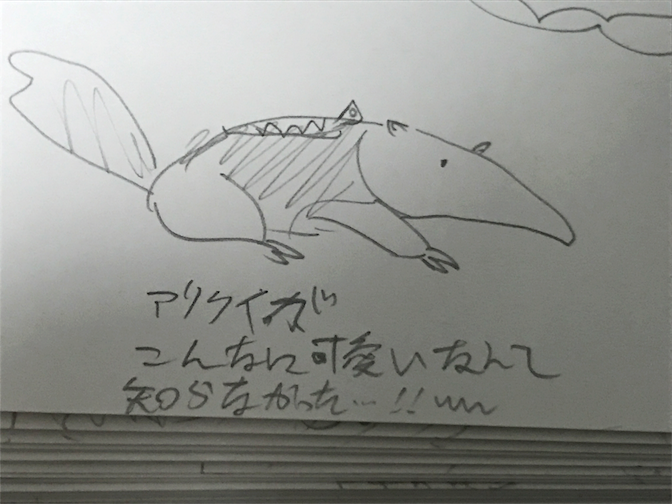 アリクイが
こんなに可愛いなんて
知らなかった…!!